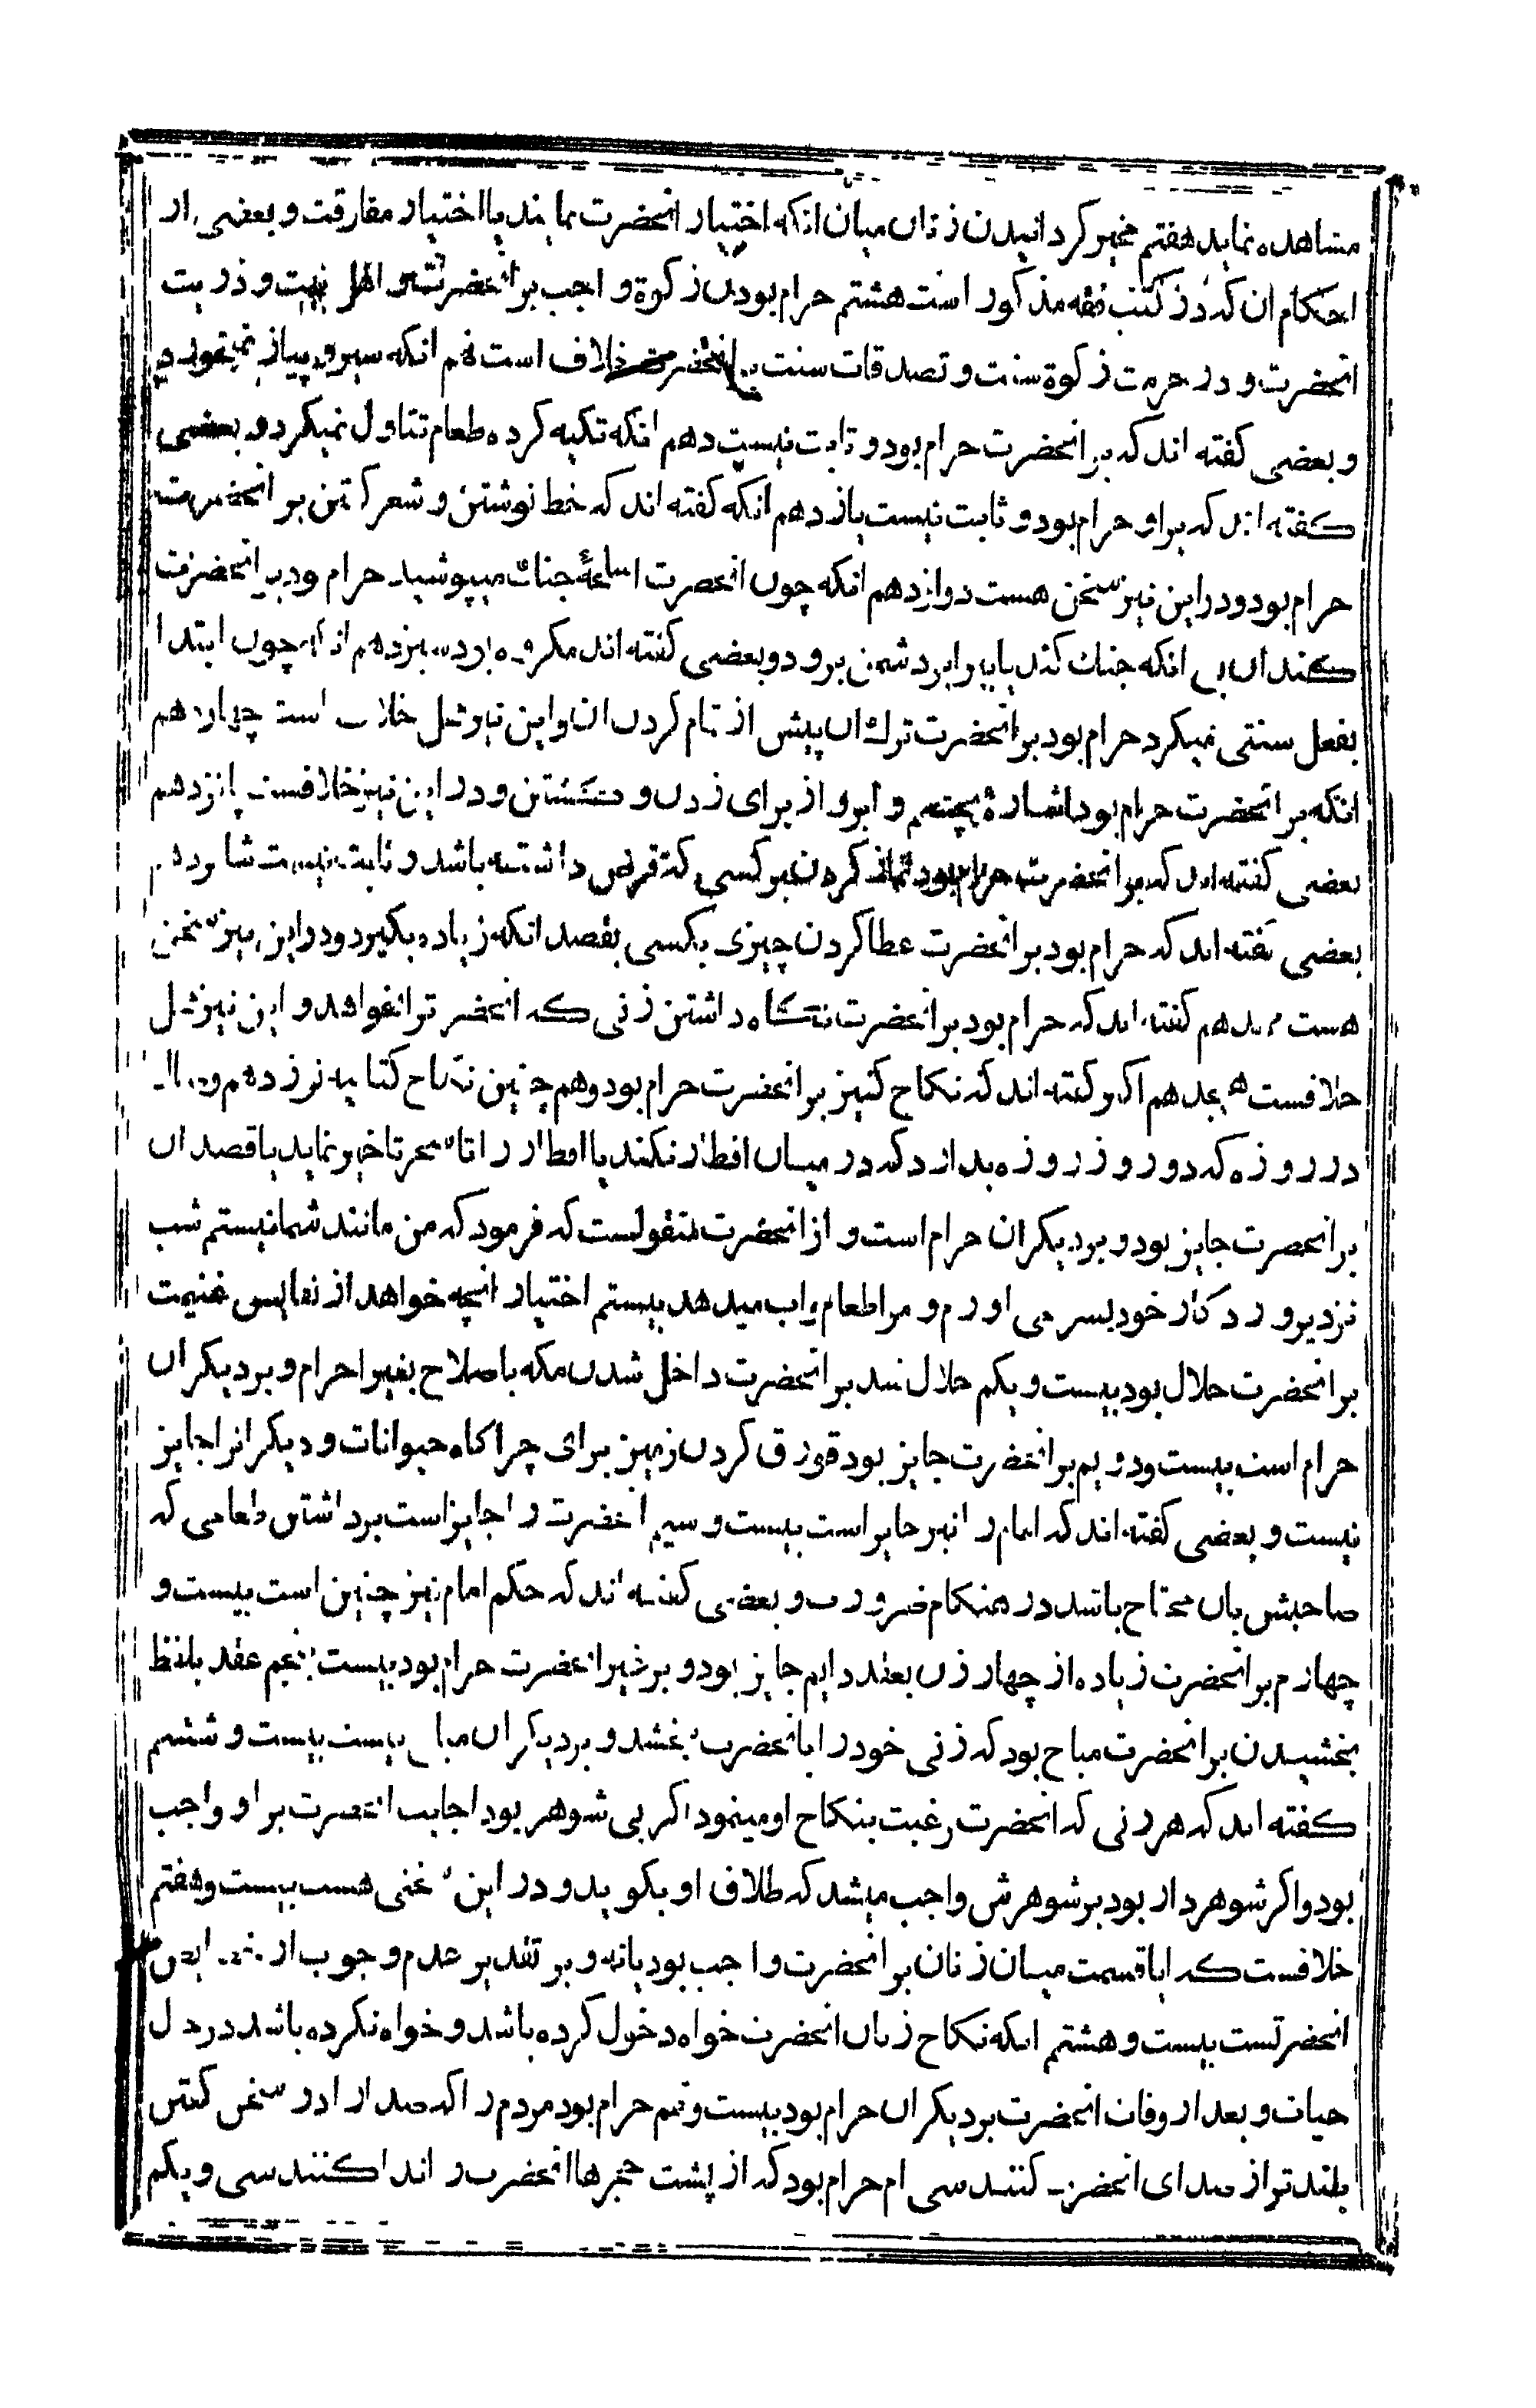 مشاهده نماید هفتم مخیر کردانیدن زنان میان انکه اختیار انحضرت نمایند یا اختیار مفارقت و بعضی از
احکام ان که در کتب فقه مذکور است هشتم حرام بودن زکوة واجب بر انحضرت و اهل بیت و ذریت
انحضرت و در حرمت زکوة سنت و تصدقات سنت بر انحضرت خلاف است نهم انکه سیر و پیاز نمیخورد
و بعضی کفته اند که بر انحضرت حرام بود و ثابت نیست دهم انکه تکیه کرده طعام تناول نمیکرد و بعضی
کفته اند که براو حرام بود و ثابت نیست یازدهم انکه کفته اند که خط نوشتن و شعر کفتن بر انحضرت
حرام بود و در این نیز سخن هست دوازدهم انکه چون انحضرت اسلحۀ جنك میپوشید حرام بود بر انحضرت
کندن ان بی انکه جنك کند یا برابر دشمن برود و بعضی کفته اند مکروه بود سیزدهم انکه چون ابتدا
بفعل سنتی میکرد حرام بود بر انحضرت ترك ان پیش از تمام کردن ان و این نیز محل خلاف است چهاردهم
انکه بر انحضرت حرام بود اشارۀ بچشم و ابرو از برای زدن و کشتن و در این نیز خلافست پانزدهم
بعضی کفته اند که بر انحضرت حرام بود نماز کردن بر کسی که قرض داشته باشد و ثابت نیست شانزدهم
بعضی کفته اند که حرام بود بر انحضرت عطا کردن چیزی بکسی بقصد انکه زیاده بکیرد و در این نیز سخن
هست هفدهم کفته اند که حرام بود بر انحضرت نکاه داشتن زنی که انحضرترا نخواهد و این نیز محل
خلافست هیجدهم اکثر کفته اند که نکاح کنیز بر انحضرت حرام بود و هم چنین نکاح کتابیه نوزدهم وصال
در روزه که دو روز روزه بدارد که در میان افطار نکند یا افطار را تا سحر تاخیر نماید با قصد ان
بر انحضرت جایز بود و بر دیکران حرام است و از انحضرت منقولست که فرمود که من مانند شما نیستم شب
نزد پروردکار خود بسر می اورم و مرا طعام و اب میدهد بیستم اختیار انچه خواهد از نفایس غنیمت
بر انحضرت حلال بود بیست و یکم حلال شد بر انحضرت داخل شدن مکه با صلاح بغیر احرام و بر دیکران
حرام است بیست و دویم بر انحضرت جایز بود قورق کردن زمین برای چراکاه حیوانات و دیکرانرا جایز
نیست و بعضی کفته اند که امام را نیز جایز است بیست و سیم انحضرت را جایز است برداشتن طعامی که
صاحبش بان محتاج باشد در هنکام ضرورت و بعضی کفته اند که حکم امام نیز چنین است بیست و
چهارم بر انحضرت زیاده از چهار زن بعقد دایم جایز بود و بر غیر انحضرت حرام بود بیست پنجم عقد بلفظ
بخشیدن بر انحضرت مباح بود که زنی خود را بانحضرت بخشد و بر دیکران مباح نیست بیست و ششم
کفته اند که هر زنی که انحضرت رغبت بنکاح او مینمود اکر بی شوهر بود اجابت انحضرت بر او واجب
بود و اکر شوهردار بود بر شوهرش واجب میشد که طلاق او بکوید و در این سخنی هست بیست و هفتم
خلافست که ایا قسمت میان زنان بر انحضرت واجب بود یا نه و بر تقدیر عدم وجوب از خصایص
انحضرتست بیست و هشتم انکه نکاح زنان انحضرت خواه دخول کرده باشد و خواه نکرده باشد در حال
حیات و بعد از وفات انحضرت بر دیکران حرام بود بیست و نهم حرام بود مردم را که صدا را در سخن کفتن
بلندتر از صدای انحضرت کنند سی ام حرام بود که از پشت حجرها انحضرت را ندا کنند سی و یکم